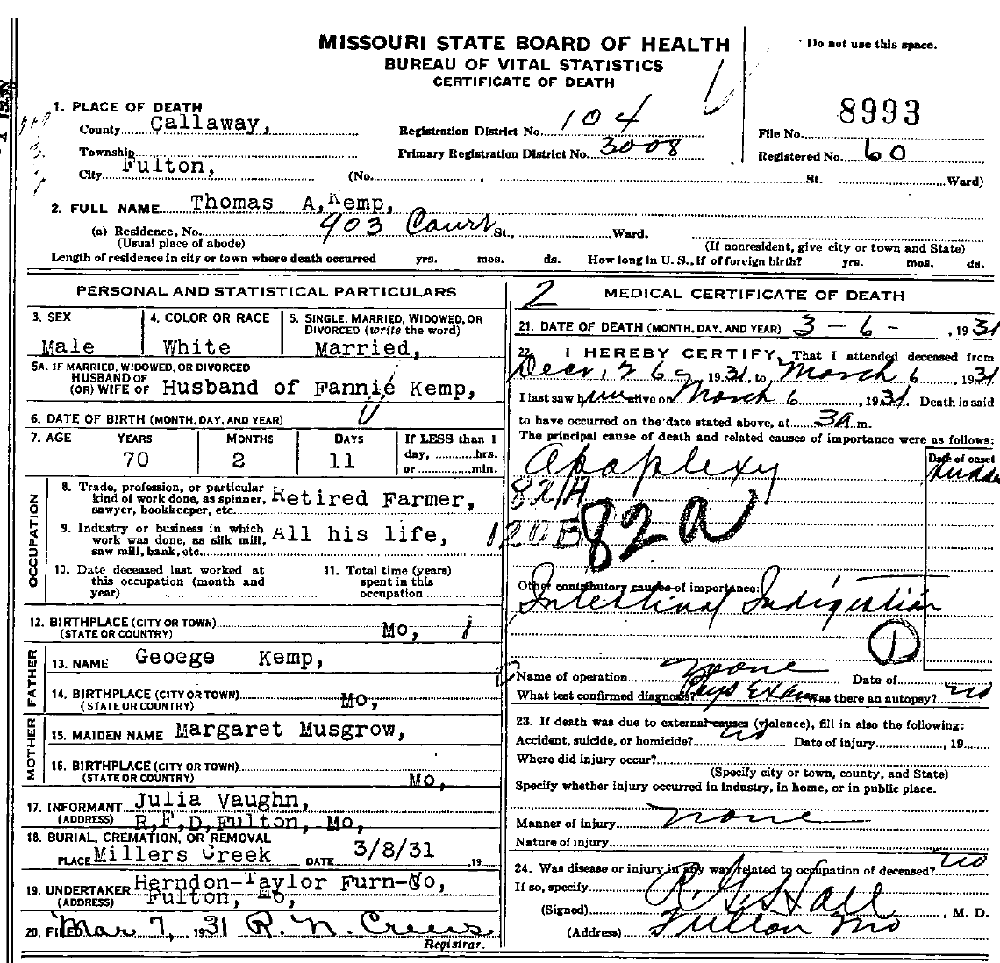 MISSOURI STATE BOARD OF HEALTH
BUREAU OF VITAL STATISTICS
CERTIFICATE OF DEATH
Do not use this space.
8993
1. PLACE OF DEATH
County Callaway, Registration District No. 104 File No.
Township Primary Registration District No. 3008 Registered No. 60
City Fulton, (No. St. Ward)
2. FULL NAME Thomas A, Kemp,
(a) Residence, No. 903 Court St., Ward.
(Usual place of abode) (If nonresident, give city or town and State)
Length of residence in city or town where death occurred yrs. mos. ds. How long in U. S., if of foreign birth? yrs. mos. ds.
PERSONAL AND STATISTICAL PARTICULARS
3. SEX 4. COLOR OR RACE 5. SINGLE, MARRIED, WIDOWED, OR
DIVORCED (write the word)
Male White Married,
5A. IF MARRIED, WIDOWED, OR DIVORCED
HUSBAND OF
(OR) WIFE OF Husband of Fannie Kemp,
6. DATE OF BIRTH (MONTH, DAY, AND YEAR)
7. AGE YEARS MONTHS DAYS If LESS than 1
day, hrs.
70 2 11 or min.
OCCUPATION
8. Trade, profession, or particular
kind of work done, as spinner, Retired Farmer,
sawyer, bookkeeper, etc.
9. Industry or business in which
work was done, as silk mill, All his life,
saw mill, bank, etc.
10. Date deceased last worked at 11. Total time (years)
this occupation (month and spent in this
year) occupation
12. BIRTHPLACE (CITY OR TOWN)
(STATE OR COUNTRY) Mo,
FATHER
13. NAME Geoege Kemp,
14. BIRTHPLACE (CITY OR TOWN)
(STATE OR COUNTRY) Mo,
MOTHER
15. MAIDEN NAME Margaret Musgrow,
16. BIRTHPLACE (CITY OR TOWN)
(STATE OR COUNTRY) Mo,
17. INFORMANT Julia Vaughn,
(ADDRESS) R,F,D,Fulton, Mo,
18. BURIAL, CREMATION, OR REMOVAL
PLACE Millers Creek DATE 3/8/31 , 19
19. UNDERTAKER Herndon-Taylor Furn-Co,
(ADDRESS) Fulton, Mo,
20. FILED Mar 7, 1931 R. N. Crews
Registrar.
2 MEDICAL CERTIFICATE OF DEATH
21. DATE OF DEATH (MONTH, DAY, AND YEAR) 3-6- , 1931
22. I HEREBY CERTIFY, That I attended deceased from
1931, to March 6, 1931
I last saw him alive on March 6, 1931 Death is said
to have occurred on the date stated above, at 3a m.
The principal cause of death and related causes of importance were as follows:
Date of onset
Apoplexy
82A
82a
Other contributory causes of importance:
Intestinal Indigestion
1
Name of operation none Date of
What test confirmed diagnosis? Phys Exam Was there an autopsy? no
23. If death was due to external causes (violence), fill in also the following:
Accident, suicide, or homicide? no Date of injury , 19
Where did injury occur?
(Specify city or town, county, and State)
Specify whether injury occurred in industry, in home, or in public place.
Manner of injury none
Nature of injury
24. Was disease or injury in any way related to occupation of deceased? no
If so, specify
(Signed) Hall , M. D.
(Address) Fulton Mo